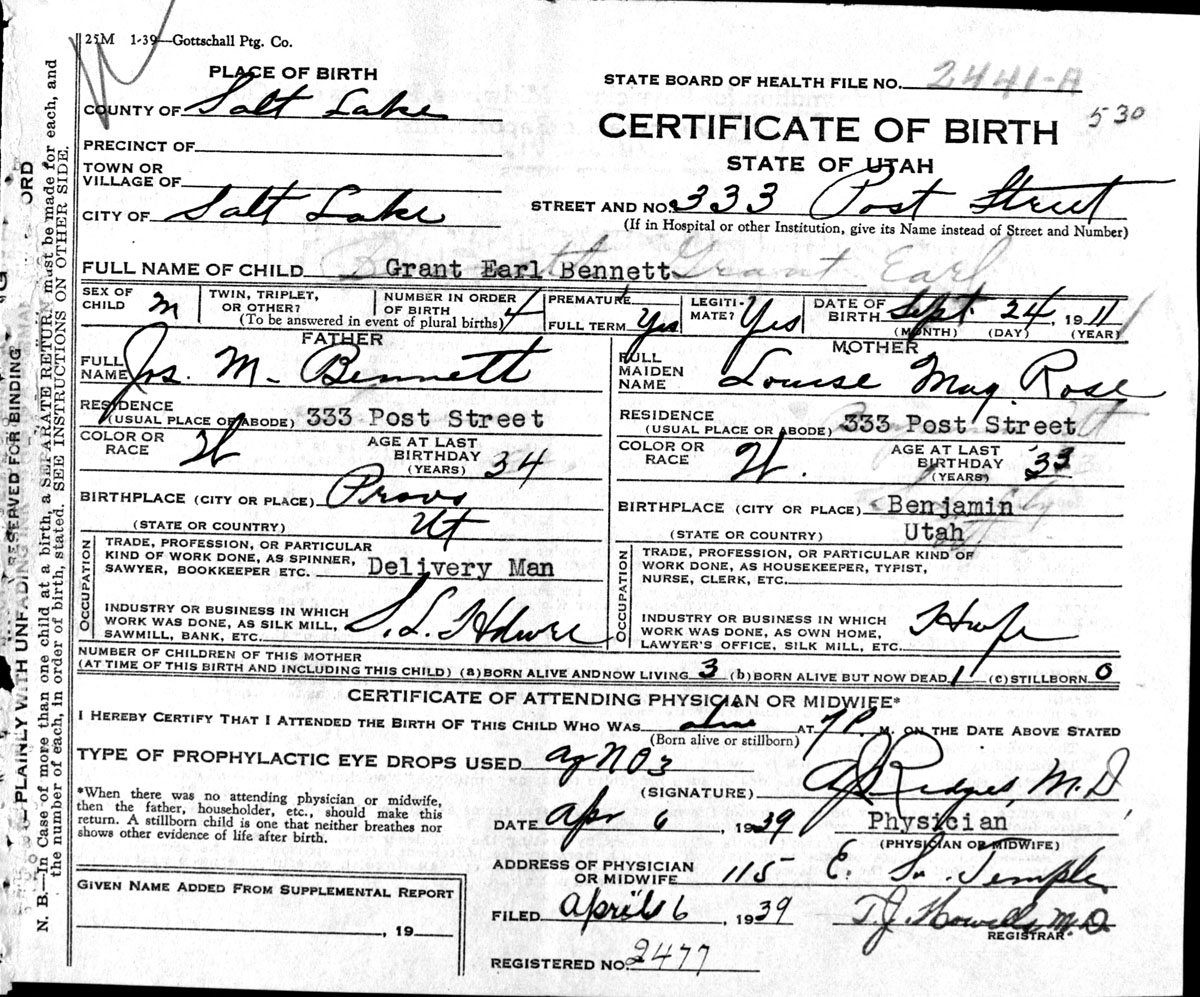 25M 1-39—Gottschall Ptg. Co.
PLACE OF BIRTH
COUNTY OF Salt Lake
PRECINCT OF
TOWN OR
VILLAGE OF
CITY OF Salt Lake
STATE BOARD OF HEALTH FILE NO. 2441-A
530
CERTIFICATE OF BIRTH
STATE OF UTAH
STREET AND NO. 333 Post Street
(If in Hospital or other Institution, give its Name instead of Street and Number)
FULL NAME OF CHILD Grant Earl Bennett Grant Earl
SEX OF CHILD M
TWIN, TRIPLET, OR OTHER?
NUMBER IN ORDER OF BIRTH 4
(To be answered in event of plural births)
PREMATURE
FULL TERM Yes
LEGITI-MATE? Yes
DATE OF BIRTH Sept. 24, 1911
(MONTH) (DAY) (YEAR)
FATHER
FULL NAME Jos. M. Bennett
RESIDENCE
(USUAL PLACE OF ABODE) 333 Post Street
COLOR OR RACE W
AGE AT LAST BIRTHDAY (YEARS) 34
BIRTHPLACE (CITY OR PLACE) Provo
(STATE OR COUNTRY) Ut
OCCUPATION
TRADE, PROFESSION, OR PARTICULAR
KIND OF WORK DONE, AS SPINNER,
SAWYER, BOOKKEEPER ETC. Delivery Man
INDUSTRY OR BUSINESS IN WHICH
WORK WAS DONE, AS SILK MILL,
SAWMILL, BANK, ETC. S. L. Hdwre
MOTHER
FULL MAIDEN NAME Louise May Rose
RESIDENCE
(USUAL PLACE OR ABODE) 333 Post Street
COLOR OR RACE W.
AGE AT LAST BIRTHDAY (YEARS) 33
BIRTHPLACE (CITY OR PLACE) Benjamin
(STATE OR COUNTRY) Utah
OCCUPATION
TRADE, PROFESSION, OR PARTICULAR KIND OF
WORK DONE, AS HOUSEKEEPER, TYPIST,
NURSE, CLERK, ETC.
INDUSTRY OR BUSINESS IN WHICH
WORK WAS DONE, AS OWN HOME,
LAWYER'S OFFICE, SILK MILL, ETC. Hwfe
NUMBER OF CHILDREN OF THIS MOTHER
(AT TIME OF THIS BIRTH AND INCLUDING THIS CHILD) (a) BORN ALIVE AND NOW LIVING 3 (b) BORN ALIVE BUT NOW DEAD 1 (c) STILLBORN 0
CERTIFICATE OF ATTENDING PHYSICIAN OR MIDWIFE*
I HEREBY CERTIFY THAT I ATTENDED THE BIRTH OF THIS CHILD WHO WAS alive AT 7 P. M. ON THE DATE ABOVE STATED
(Born alive or stillborn)
TYPE OF PROPHYLACTIC EYE DROPS USED AgNO3
*When there was no attending physician or midwife,
then the father, householder, etc., should make this
return. A stillborn child is one that neither breathes nor
shows other evidence of life after birth.
(SIGNATURE) Ridges, M.D.
DATE Apr 6, 1939 Physician
(PHYSICIAN OR MIDWIFE)
ADDRESS OF PHYSICIAN
OR MIDWIFE 115 E. So. Temple
GIVEN NAME ADDED FROM SUPPLEMENTAL REPORT
, 19
FILED April 6, 1939 T. J. Howells M.D.
REGISTRAR
REGISTERED NO. 2477
N. B.—In Case of more than one child at a birth, a SEPARATE RETURN must be made for each, and
the number of each, in order of birth, stated. SEE INSTRUCTIONS ON OTHER SIDE.
PLAINLY WITH UNFADING
RESERVED FOR BINDING